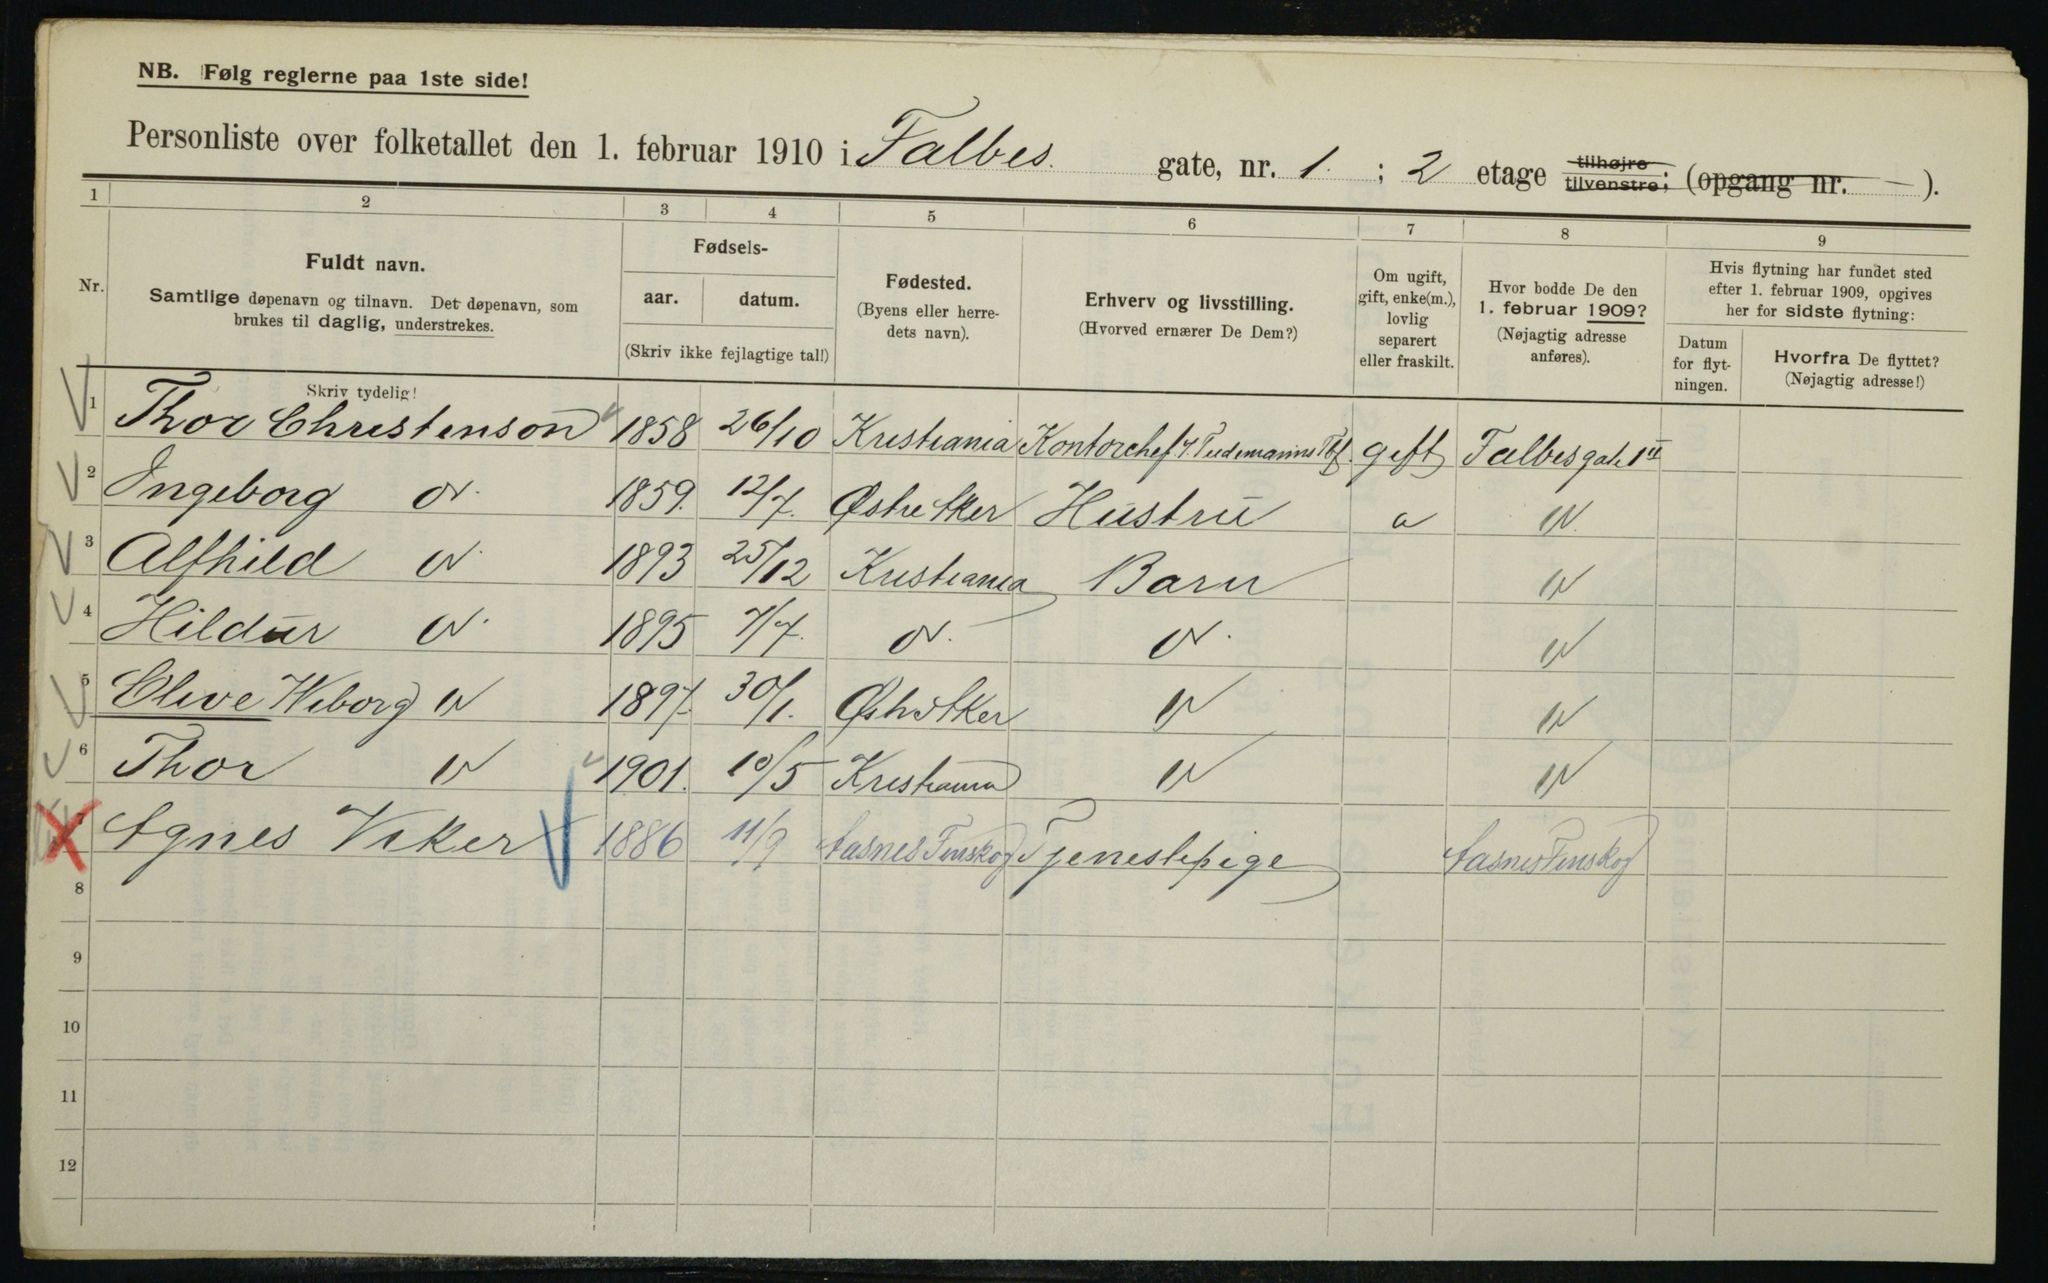 NB. Følg reglerne paa 1ste side!
Personliste over folketallet den 1. februar 1910 i Falbes gate, nr. 1 ; 2 etage tilhøjre tilvenstre; (opgang nr. — ).
1 2 3 4 5 6 7 8 9
Nr.
Fuldt navn.
Samtlige døpenavn og tilnavn. Det døpenavn, som
brukes til daglig, understrekes.
Skriv tydelig!
Fødsels-
aar. datum.
(Skriv ikke fejlagtige tal!)
Fødested.
(Byens eller herre-
dets navn).
Erhverv og livsstilling.
(Hvorved ernærer De Dem?)
Om ugift,
gift, enke(m.),
lovlig
separert
eller fraskilt.
Hvor bodde De den
1. februar 1909?
(Nøjagtig adresse
anføres).
Hvis flytning har fundet sted
efter 1. februar 1909, opgives
her for sidste flytning:
Datum
for flyt-
ningen.
Hvorfra De flyttet?
(Nøjagtig adresse!)
1 Thor Christenson 1858 26/10 Kristiania Kontorchef Tiedemanns Tbf. gift Falbesgate 1 II
2 Ingeborg do. 1859. 12/7. Østre Aker Hustru do
3 Alfhild do. 1893 25/12 Kristiania Barn do
4 Hildur do. 1895 7/7. do. do. do
5 Olive Wiborg do 1897. 30/1. Østre Aker do do
6 Thor do 1901. 10/5 Kristiania do do
7 Agnes Viker 1886 11/9 Aasnes Finskog Tjenestepige Aasnes Finskog
8
9
10
11
12